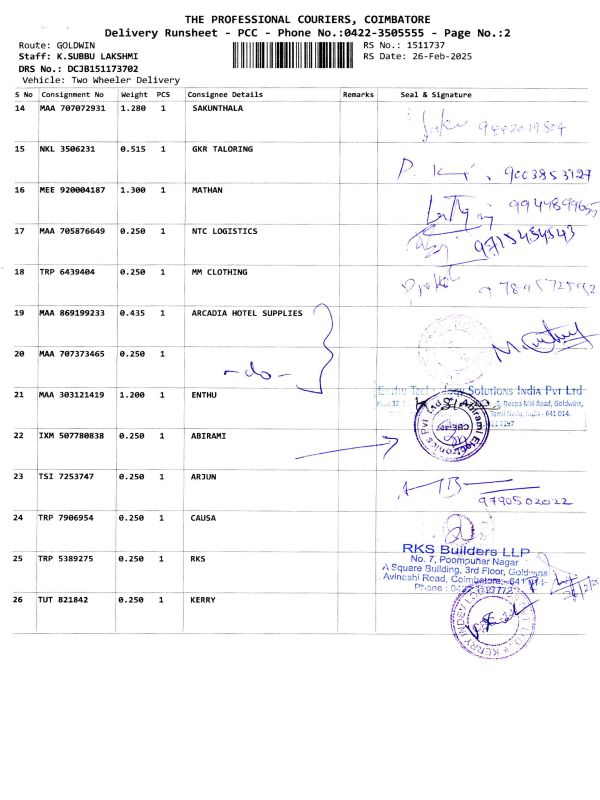 THE PROFESSIONAL COURIERS, COIMBATORE
Delivery Runsheet - PCC - Phone No.:0422-3505555 - Page No.:2
Route: GOLDWIN
RS No.: 1511737
Staff: K.SUBBU LAKSHMI
RS Date: 26-Feb-2025
DRS No.: DCJB151173702
Vehicle: Two Wheeler Delivery
S No Consignment No Weight PCS Consignee Details Remarks Seal & Signature
14 MAA 707072931 1.280 1 SAKUNTHALA
15 NKL 3506231 0.515 1 GKR TALORING
16 MEE 920004187 1.300 1 MATHAN
17 MAA 705876649 0.250 1 NTC LOGISTICS
18 TRP 6439404 0.250 1 MM CLOTHING
19 MAA 869199233 0.435 1 ARCADIA HOTEL SUPPLIES
20 MAA 707373465 0.250 1
-do-
21 MAA 303121419 1.200 1 ENTHU
Solutions India Pvt Ltd
Deepa Mill Road, Goldwins,
Tamil Nadu, India - 641 014.
22 IXM 507780838 0.250 1 ABIRAMI
23 TSI 7253747 0.250 1 ARJUN
9790502022
24 TRP 7906954 0.250 1 CAUSA
25 TRP 5389275 0.250 1 RKS
RKS Builders LLP
No. 7, Poompuhar Nagar
A Square Building, 3rd Floor, Goldwins
Avinashi Road, Coimbatore - 641
Phone :
26 TUT 821842 0.250 1 KERRY